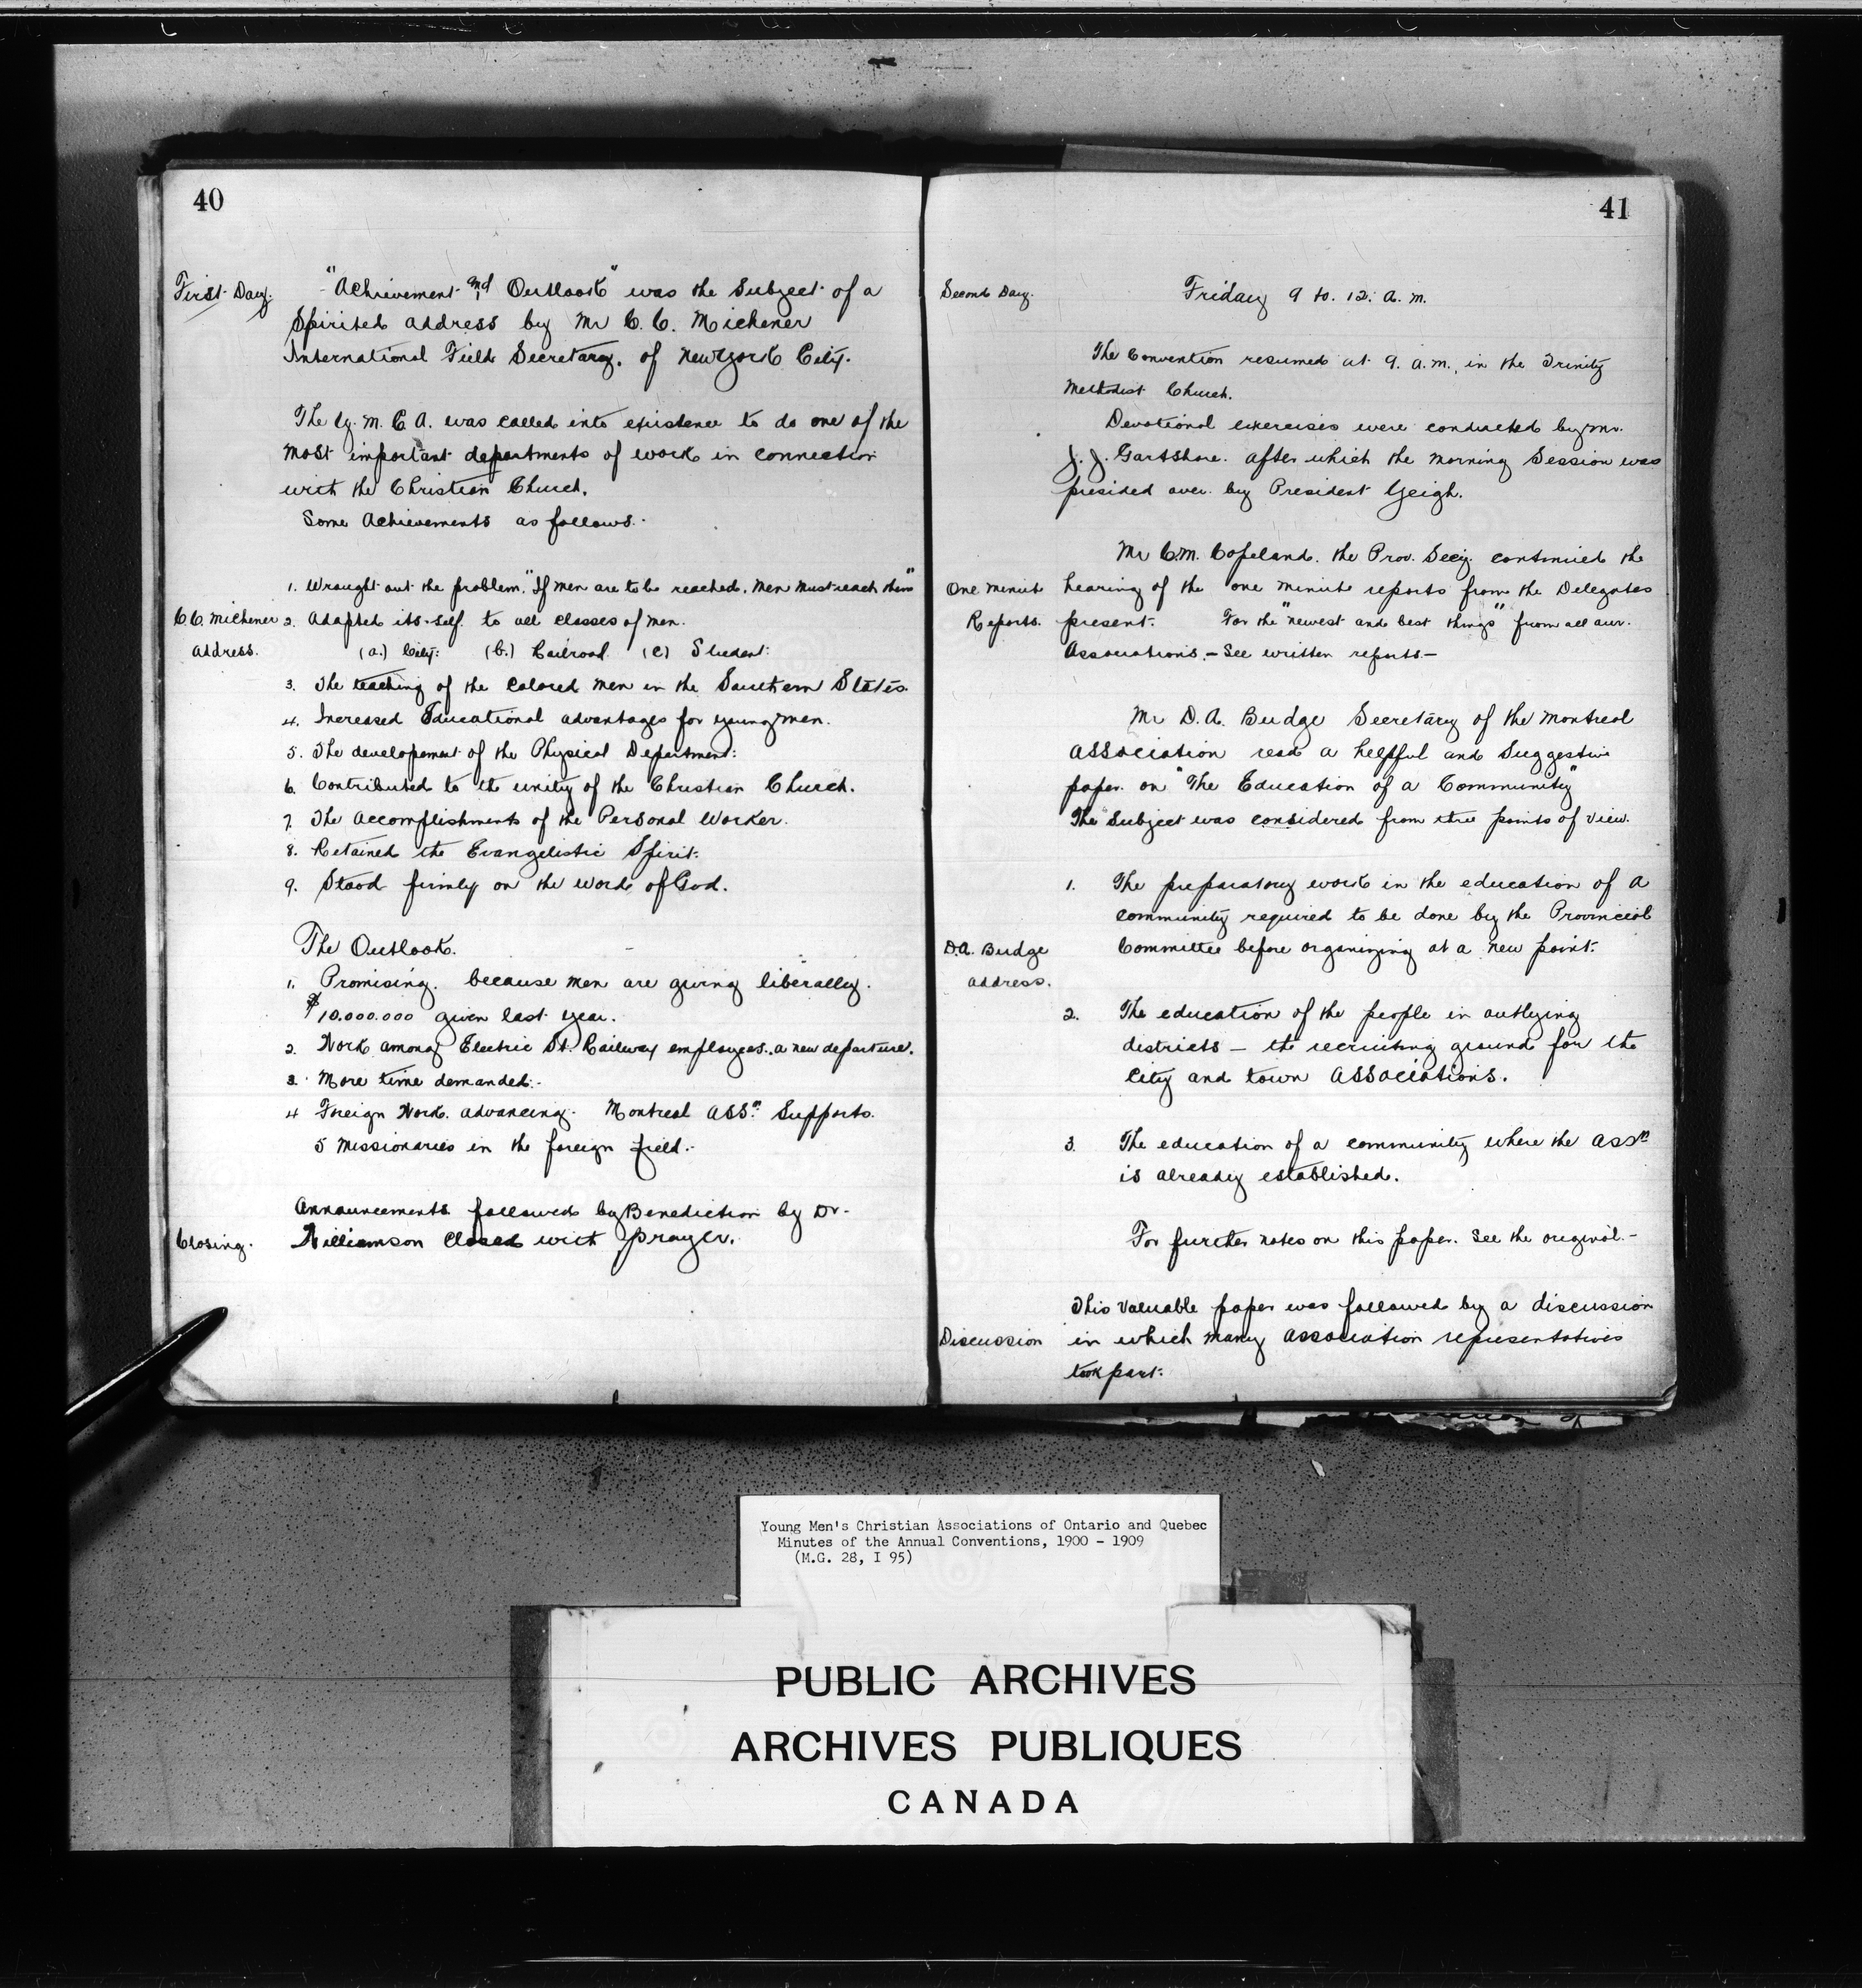 40
First Day.
"Achievement and Outlook" was the Subject of a
Spirited address by Mr C. C. Michener
International Field Secretary. of New York City.
The Y. M. C A. was called into existence to do one of the
most important departments of work in connection
with the Christian Church.
Some Achievements as follows.
1. Wrought out the problem. "If men are to be reached. Men must reach them"
C. C. Michener
address.
2. Adapted its-self. to all classes of men.
(a.) City: (b.) Railroad (c) Student:
3. The teaching of the Colored men in the Southern States.
4. Increased Educational advantages for young men.
5. The developement of the Physical Department:
6. Contributed to the unity of the Christian Church.
7. The accomplishments of the Personal Worker.
8. Retained the Evangelistic Spirit.
9. Stood firmly on the word of God.
The Outlook.
1. Promising. because men are giving liberally.
$10.000.000 given last year.
2. Work among Electric St. Railway employees. a new departure.
3. More time demanded.
4 Foreign Work. advancing. Montreal Assn. Supports.
5 missionaries in the foreign field.
Announcements followed by Benediction by Dr.
Closing.
Williamson Closed with prayer.
41
Second Day.
Friday 9 to. 12. a. m.
The Convention resumed at 9. a. m., in the Trinity
Methodist Church.
Devotional exercises were conducted by Mr.
J. J. Gartshore. after which the morning Session was
presided over. by President Yeigh.
Mr C. M. Copeland. the Prov. Secy. continued the
One Minute
Reports.
hearing of the one minute reports from the Delegates
present. For the "newest and best things" from all our.
Associations. - See written reports -
Mr D. A. Budge Secretary of the Montreal
Association read a helpful and Suggestive
paper. on "The Education of a Community"
The Subject was considered from three points of view.
1. The preparatory work in the education of a
community required to be done by the Provincial
Committee before organizing at a new point.
D.A. Budge
address.
2. The education of the people in outlying
districts — the recruiting ground for the
City and town Associations.
3. The education of a community where the Assn
is already established.
For further notes on this paper. See the original. -
This Valuable paper was followed by a discussion
Discussion
in which many association representatives
took part.
Young Men's Christian Associations of Ontario and Quebec
Minutes of the Annual Conventions, 1900 - 1909
(M.G. 28, I 95)
PUBLIC ARCHIVES
ARCHIVES PUBLIQUES
CANADA